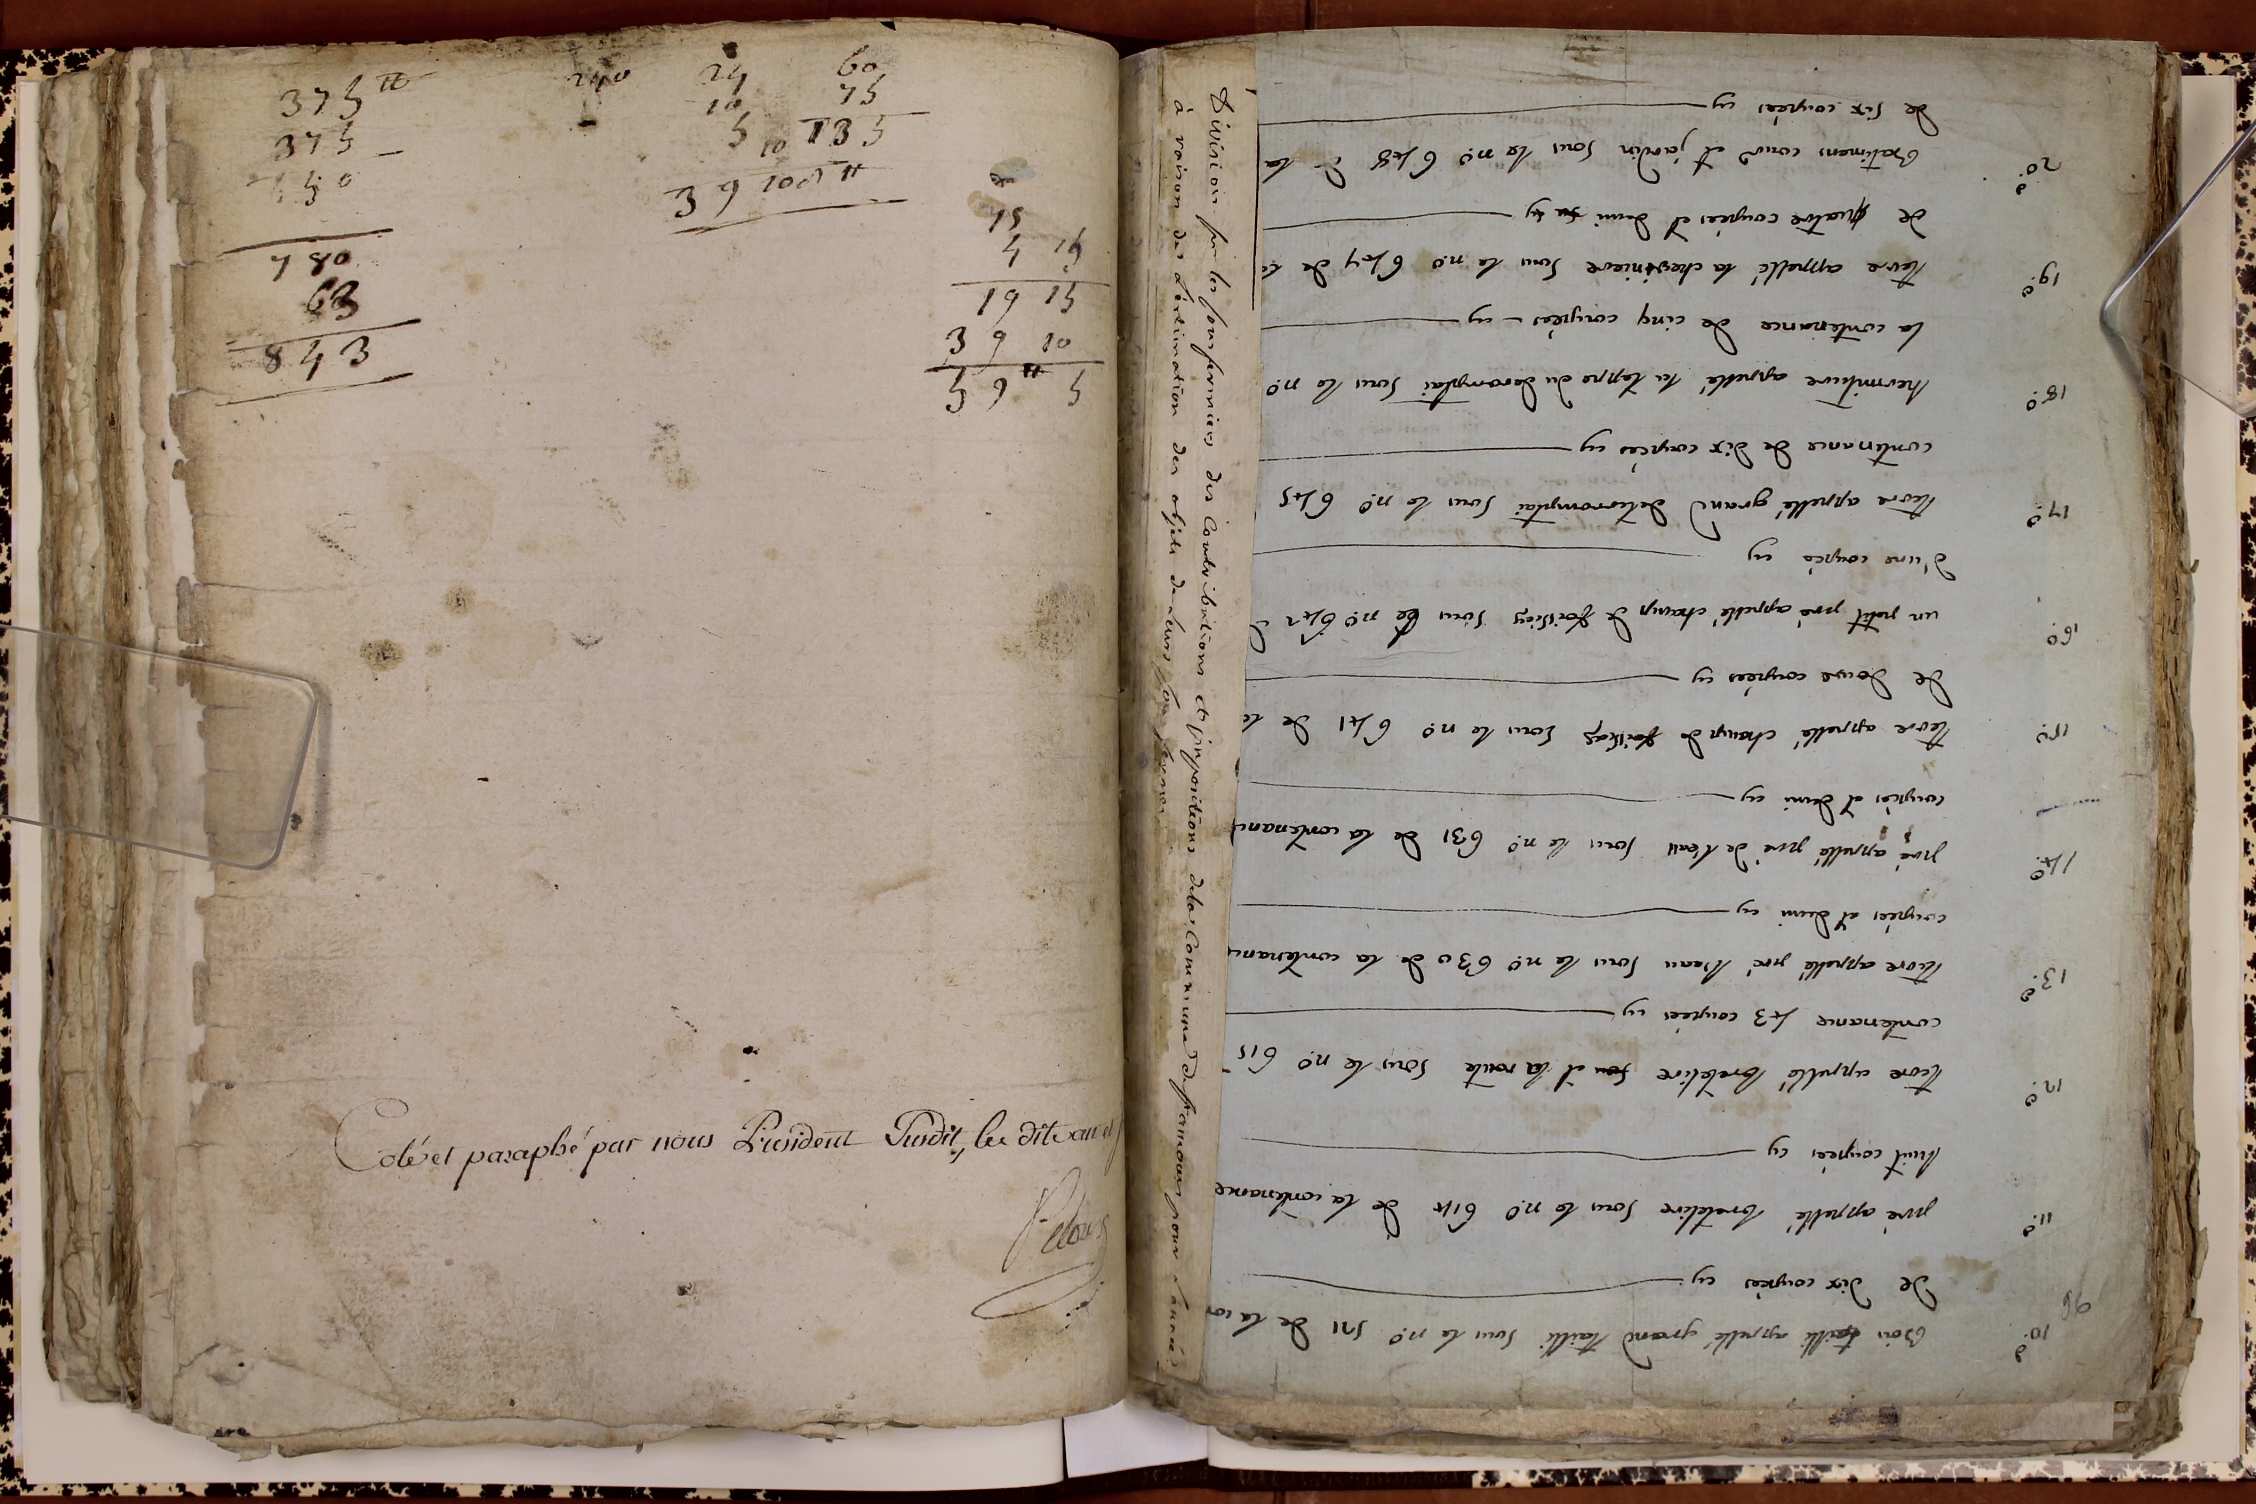 375 ₶
375
780
63
843
240
24
10
5
39 10
60
75
135
108 ₶
75
4 15
19 15
39 10
59 ₶ 5
Coté et paraphé par nous Président Susdit, les dits an et
Division par les fours fermiers des Contributions et jmpositions de la Commune de pour L'année
à raison de L'estimation des objets de leurs
96
10.° Bois taillé appellé grand taillé sous le n.° 521 de la con
de dix coupées cy
11.° pré appellé bretelire sous le n.° 614 de la contenance
huit coupées cy
12.° terre appellé bretelire et la route sous le n.° 615
contenance 43 coupées cy
13.° terre appellé pré sous le n.° 630 de la contenance
coupées et demi cy
14.° pré appellé pré de l'eau sous le n.° 631 de la contenance
coupées et demi cy
15.° terre appellé champ de sous le n.° 641 de la
de douse coupées cy
16.° un petit pré appellé champ de sous le n.° 642
d'une coupée cy
17.° terre appellé grand sous le n.° 645
contenance de dix coupées cy
18.° appellé la teppe du sous le n.°
la contenance de cinq coupées - cy
19.° terre appellé la sous le n.° 647 de la
de quatre coupées et demi cy
20.° Batimens cour et jardin sous le n.° 648 de la
de six coupées cy